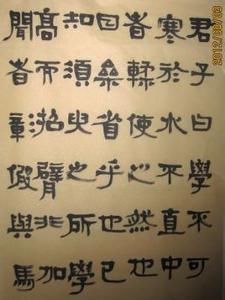 君子曰學不可
寒於水木直中
者輮使之然也
曰參省乎也已
知須臾之所學
高而招臂非加
聞者章假與馬